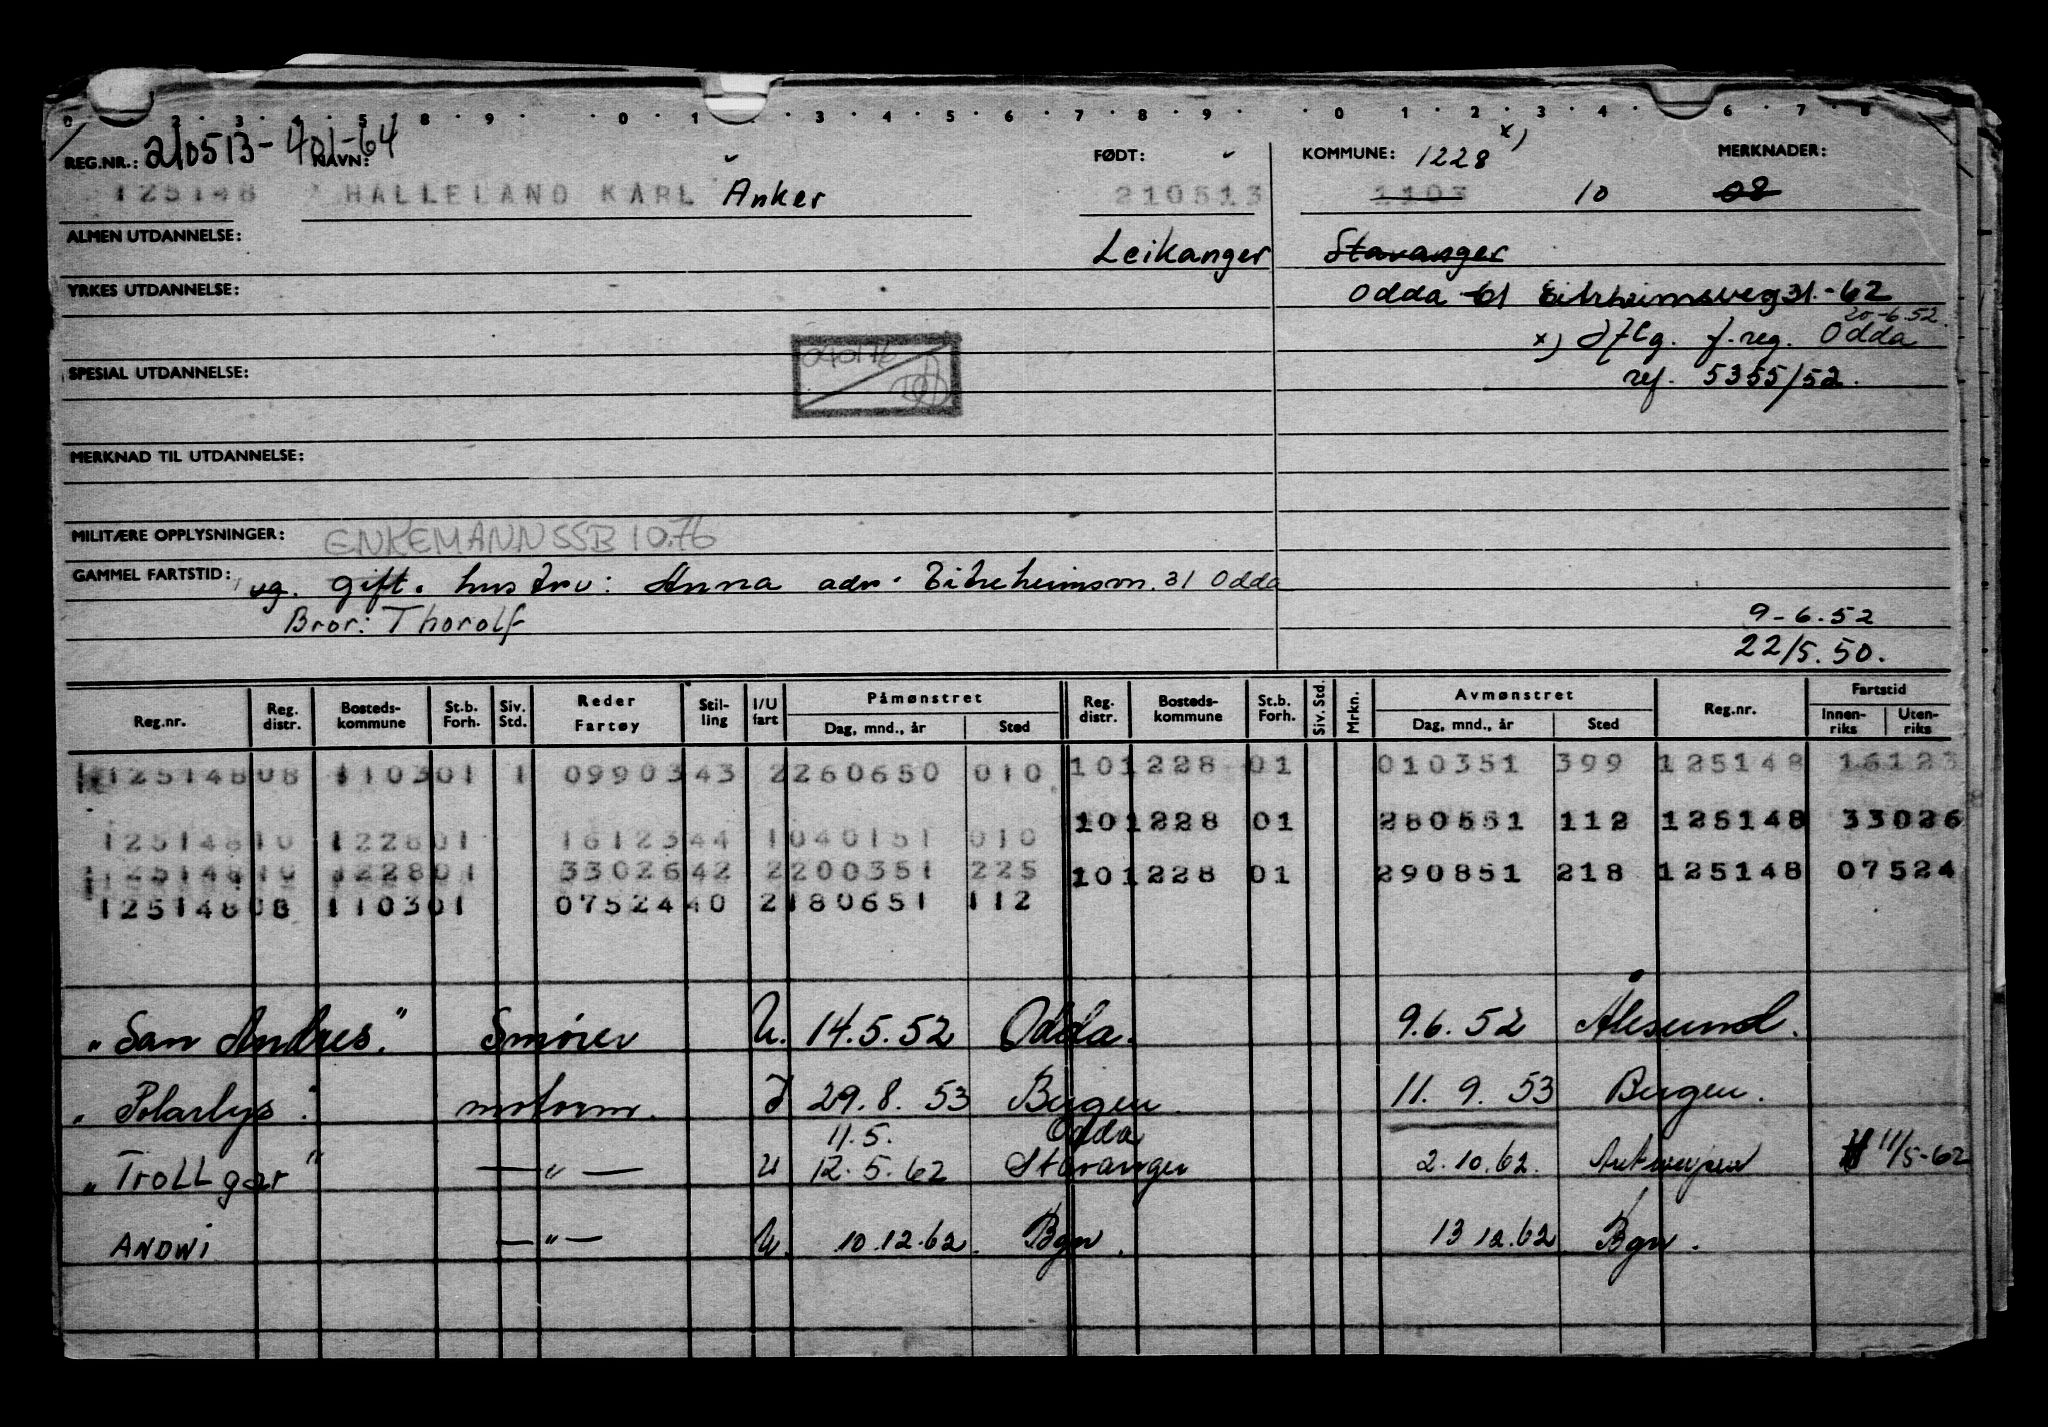 0 2 3 4 5 8 9 0 1 3 4 5 6 7 8 9 0 1 2 3 4 6 7 8
REG.NR.: 210513-401-64 NAVN: FØDT: KOMMUNE: 1228 x) MERKNADER:
125148 HALLELAND KARL Anker 210513 1103 10 08
ALMEN UTDANNELSE: Leikanger Stavanger
YRKES UTDANNELSE: Odda Eitrheimsveg 31.-62
20-6.52.
x) iflg. f.reg. Odda
SPESIAL UTDANNELSE: ref. 5355/52.
MERKNAD TIL UTDANNELSE:
MILITÆRE OPPLYSNINGER: ENKEMANN SSB 10.76
GAMMEL FARTSTID: ug. gift. hustru: Anna adr. Eitreheimsvn. 31 Odda
Bror: Thorolf 9-6.52
22/5.50.
Reg.nr. Reg. distr. Bosteds-kommune St.b. Forh. Siv. Std. Reder Fartøy Stil-ling I/U fart Påmønstret Dag, mnd., år Sted Reg. distr. Bosteds-kommune St.b. Forh. Siv. Std. Mrkn. Avmønstret Dag, mnd., år Sted Reg.nr. Fartstid Innen-riks Uten-riks
125148 08 1103 01 1 09903 43 2 260650 010 10 1228 01 010351 399 125148 16123
10 1228 01 280551 112 125148 33026
125148 10 1228 01 16123 44 1 040151 010
125148 10 1228 01 33026 42 2 200351 225 10 1228 01 290851 218 125148 07524
125148 08 1103 01 07524 40 2 180651 112
"San Andres." Smører U. 14.5.52 Odda. 9.6.52 Ålesund.
"Polarlys". motorm. I 29.8.53 Bergen. 11.9.53 Bergen.
11.5. Odda
"Trollgar" —"— U 12.5.62 Stavanger 2.10.62. Antwerpen 11/5-62
ANDWI —"— U. 10.12.62. Bgn. 13 12.62 Bgn.